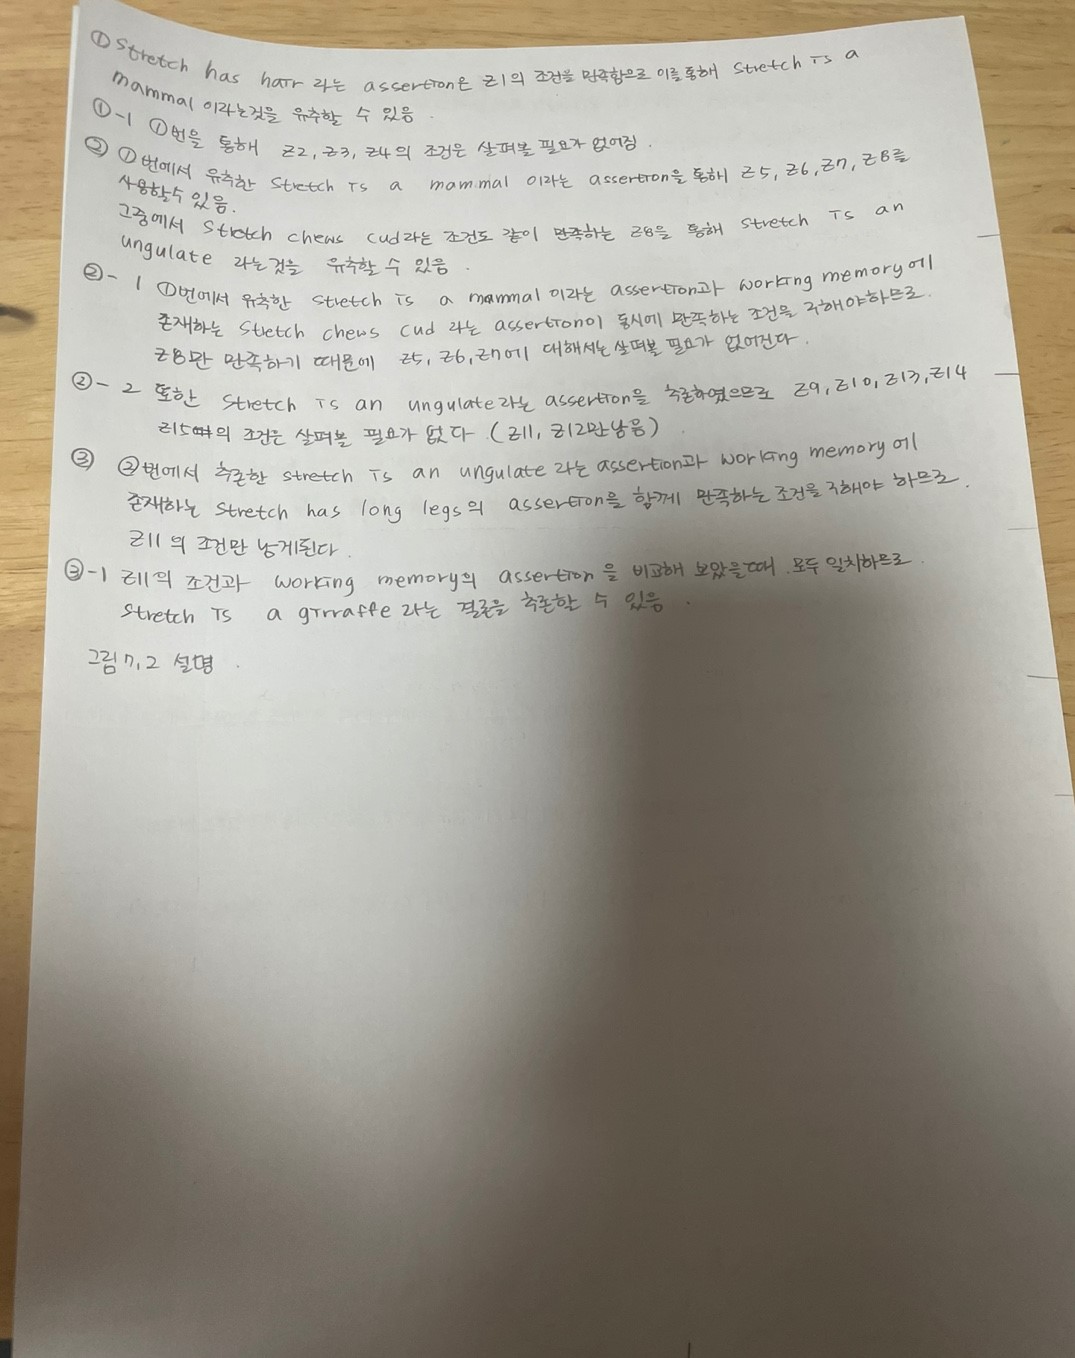 ① Stretch has hair 라는 assertion은 Z1의 조건을 만족함으로 이를통해 Stretch is a
mammal 이라는것을 유추할 수 있음.
①-1 ①번을 통해 Z2, Z3, Z4의 조건은 살펴볼 필요가 없어짐.
② ①번에서 유추한 Stretch is a mammal 이라는 assertion을 통해 Z5, Z6, Z7, Z8를
사용할수 있음.
그중에서 Stretch chews cud라는 조건도 같이 만족하는 Z8을 통해 Stretch is an
ungulate 라는것을 유추할 수 있음.
②-1 ①번에서 유추한 Stretch is a mammal 이라는 assertion과 working memory에
존재하는 Stretch chews cud 라는 assertion이 동시에 만족하는 조건을 구해야하므로.
Z8만 만족하기 때문에 Z5, Z6, Z7에 대해서는 살펴볼 필요가 없어진다.
②-2 또한 Stretch is an ungulate라는 assertion을 추론하였으므로 Z9, Z10, Z13, Z14
Z15의 조건은 살펴볼 필요가 없다. (Z11, Z12만남음)
③ ②번에서 추론한 stretch is an ungulate 라는 assertion과 working memory에
존재하는 Stretch has long legs의 assertion을 함께 만족하는 조건을 구해야 하므로.
Z11의 조건만 남게된다.
③-1 Z11의 조건과 working memory의 assertion을 비교해 보았을때 모두 일치하므로.
Stretch is a girraffe 라는 결론을 추론할 수 있음.
그림 7.2 설명.